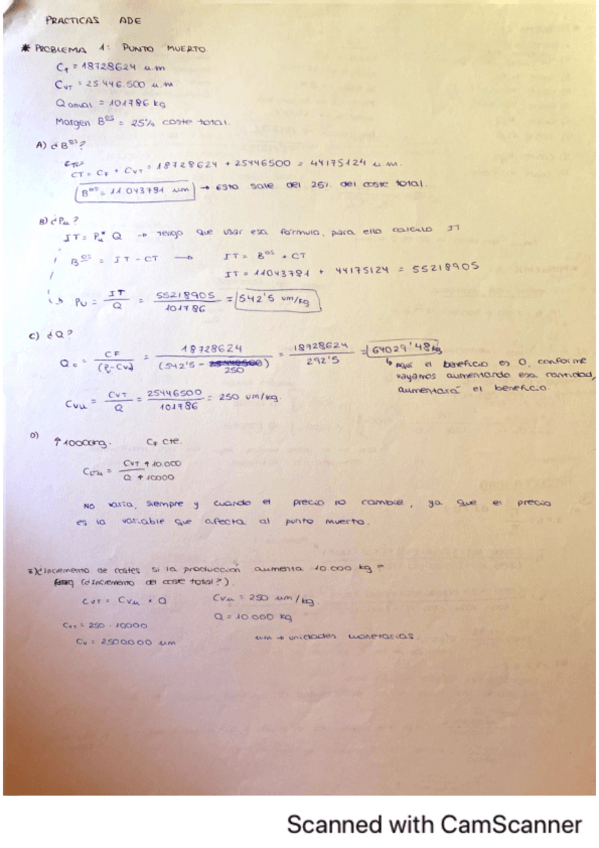 PRACTICAS ADE
* PROBLEMA 1: PUNTO MUERTO.
CF = 18728624 u.m
CVT = 25.446.500 u.m
Q anual = 101786 kg
Margen Bºs = 25% coste total.
A) ¿Bºs?
CT = CF + CVT = 18728624 + 25446500 = 44175124 u.m.
Bºs = 11.043781 um → esto sale del 25% del coste total.
B) ¿Pu?
IT = Pu * Q → Tengo que usar esa fórmula, para ello calculo IT
Bºs = IT - CT → IT = Bºs + CT
IT = 11043781 + 44175124 = 55218905
Pu = IT / Q = 55218905 / 101786 = 542'5 um/kg
C) ¿Q?
Q = CF / (P - Cvu) = 18728624 / (542'5 - 250) = 18728624 / 292'5 = 64029'48 kg
aquí el beneficio es 0, conforme
vayamos aumentando esa cantidad,
aumentará el beneficio.
Cvu = CVT / Q = 25446500 / 101786 = 250 um/kg.
D) ↑ 10000kg. CF cte.
= CVT + 10.000 / Q + 10000
No varía, siempre y cuando el precio no cambie, ya que el precio
es la variable que afecta al punto muerto.
¿Incremento de costes si la producción aumenta 10.000 kg?
(¿Incremento del coste total?)
CVT = CVu × Q CVu = 250 um/kg.
Q = 10.000 kg
= 250 · 10000
= 2500000 um um → unidades monetarias.
Scanned with CamScanner